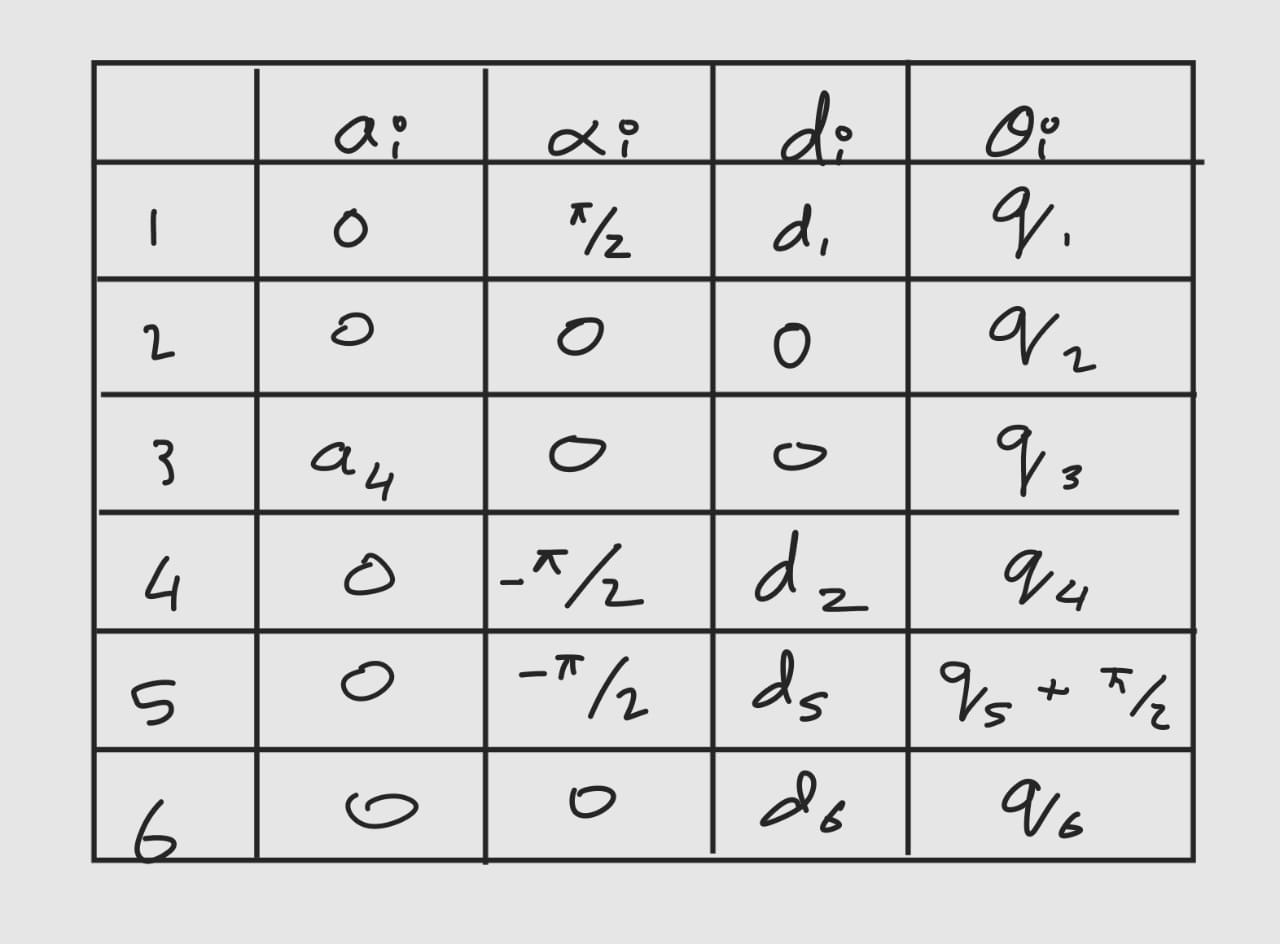 aᵢ αᵢ dᵢ θᵢ
1 0 π/2 d₁ q₁
2 0 0 0 q₂
3 a₄ 0 0 q₃
4 0 -π/2 d₂ q₄
5 0 -π/2 d₅ q₅ + π/2
6 0 0 d₆ q₆